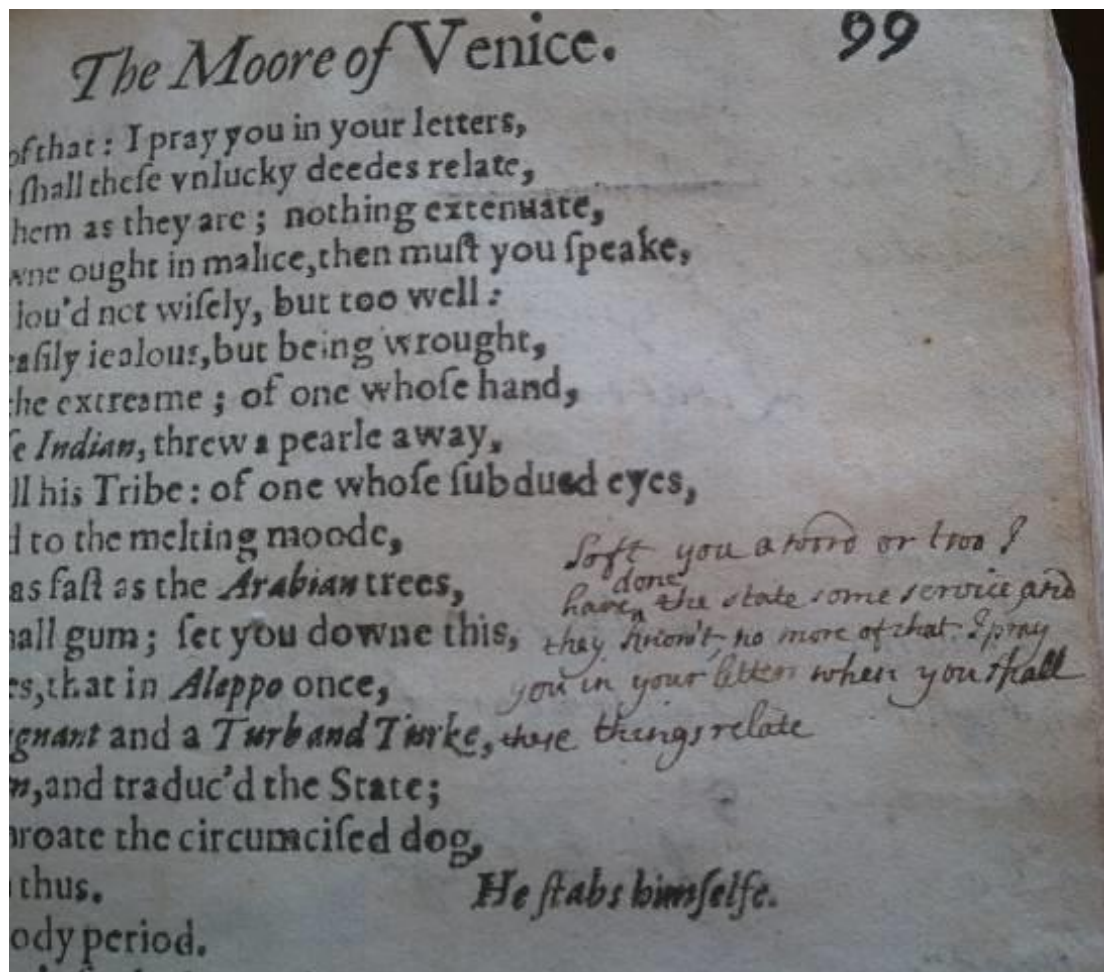 The Moore of Venice. 99
of that : I pray you in your letters,
ſhall theſe vnlucky deedes relate,
hem as they are ; nothing extenuate,
wne ought in malice,then muſt you ſpeake,
lou'd not wiſely, but too well :
eaſily iealous,but being wrought,
the extreame ; of one whoſe hand,
ſe Indian, threw a pearle away,
ll his Tribe : of one whoſe ſubdued eyes,
d to the melting moode,
as faſt as the Arabian trees,
nall gum; ſet you downe this,
es,that in Aleppo once,
gnant and a Turband Turke,
n,and traduc'd the State;
roate the circumciſed dog,
thus. He ſtabs himſelfe.
ody period.
Soft you a word or two I
have done the state some service and
they know't, no more of that. I pray
you in your letters when you shall
these things relate